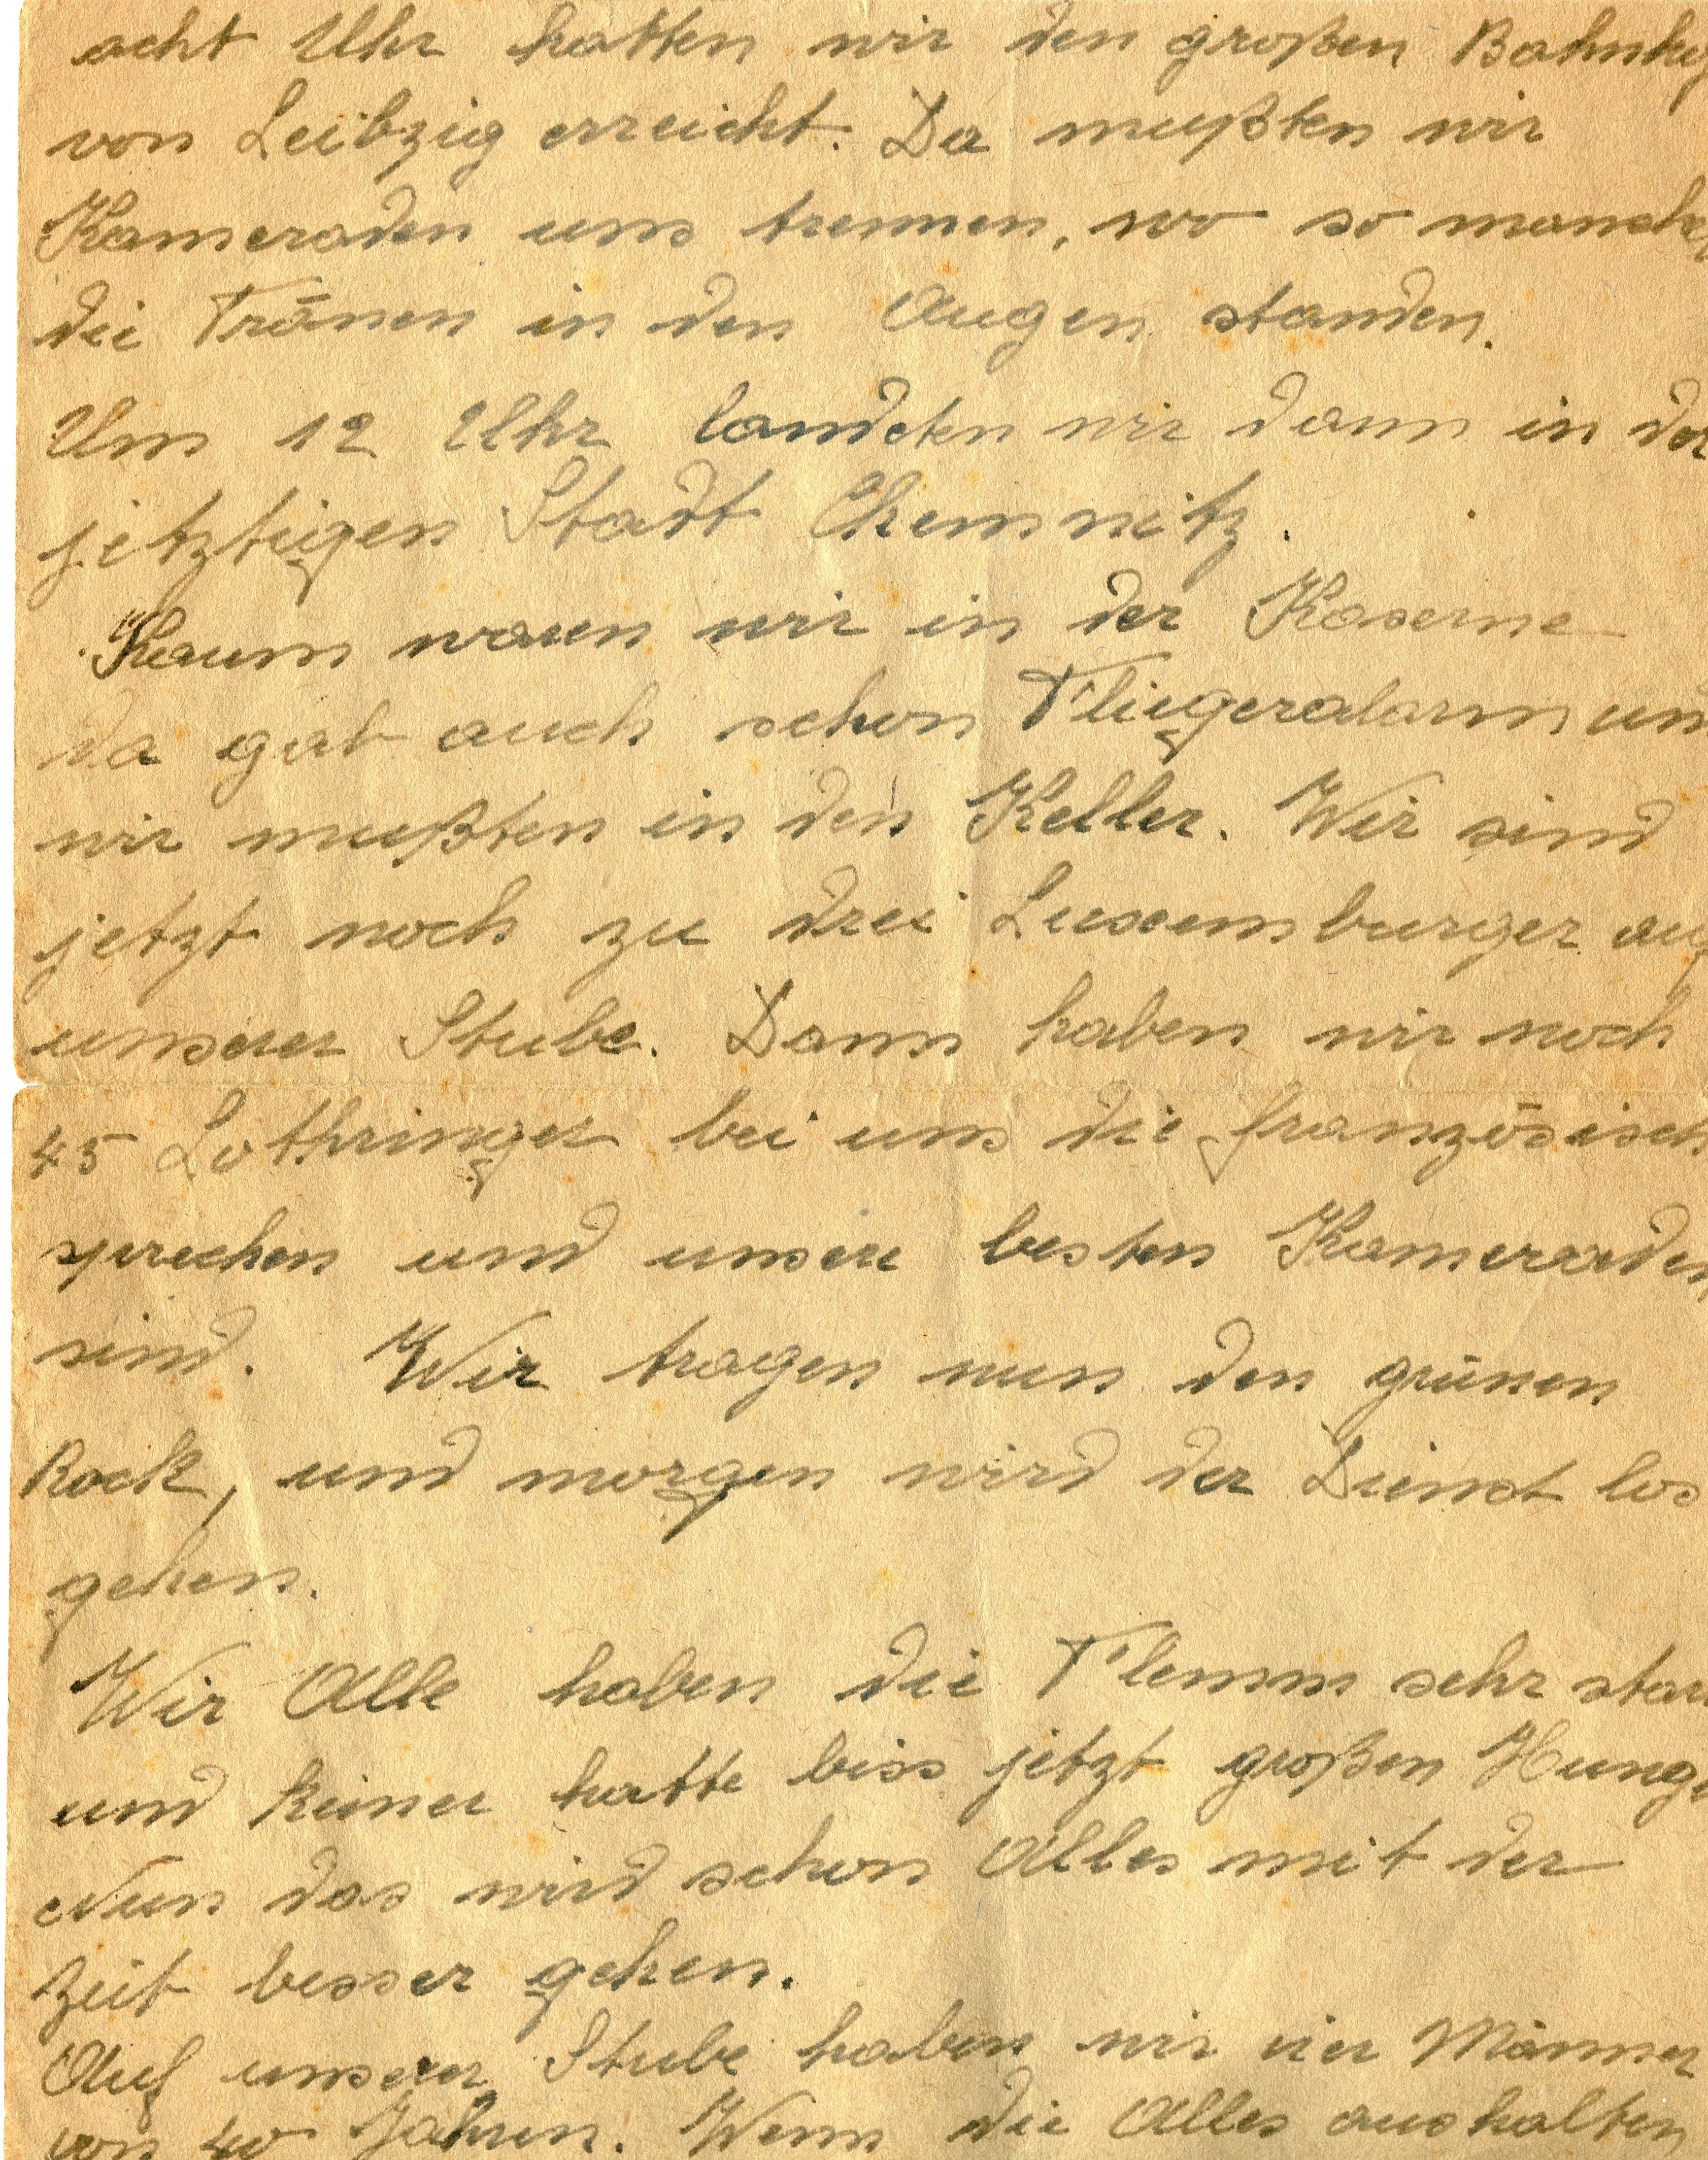 acht Uhr hatten wir den großen Bahnhof
von Leibzig erreicht. Da mußten wir
Kameraden uns trennen, wo so manche
die Tränen in den Augen standen.
Um 12 Uhr landeten wir dann in der
jetztigen Stadt Chemnitz.
Kaum waren wir in der Kaserne
da gab auch schon Fliegeralarm un
wir mußten in den Keller. Wir sind
jetzt noch zu drei Luxemburger auf
unserer Stube. Dann haben wir noch
45 Lothringer bei uns die französisch
sprechen und unsere besten Kameraden
sind. Wir tragen nun den grünen
Rock, und morgen wird der Dienst los
gehen.
Wir Alle haben die Flemm sehr star
und keiner hatte biss jetzt großen Hunge
Nun das wird schon Alles mit der
Zeit besser gehen.
Auf unserer Stube haben wir vier Männer
von 40 Jahren. Wenn die Alles aushalten